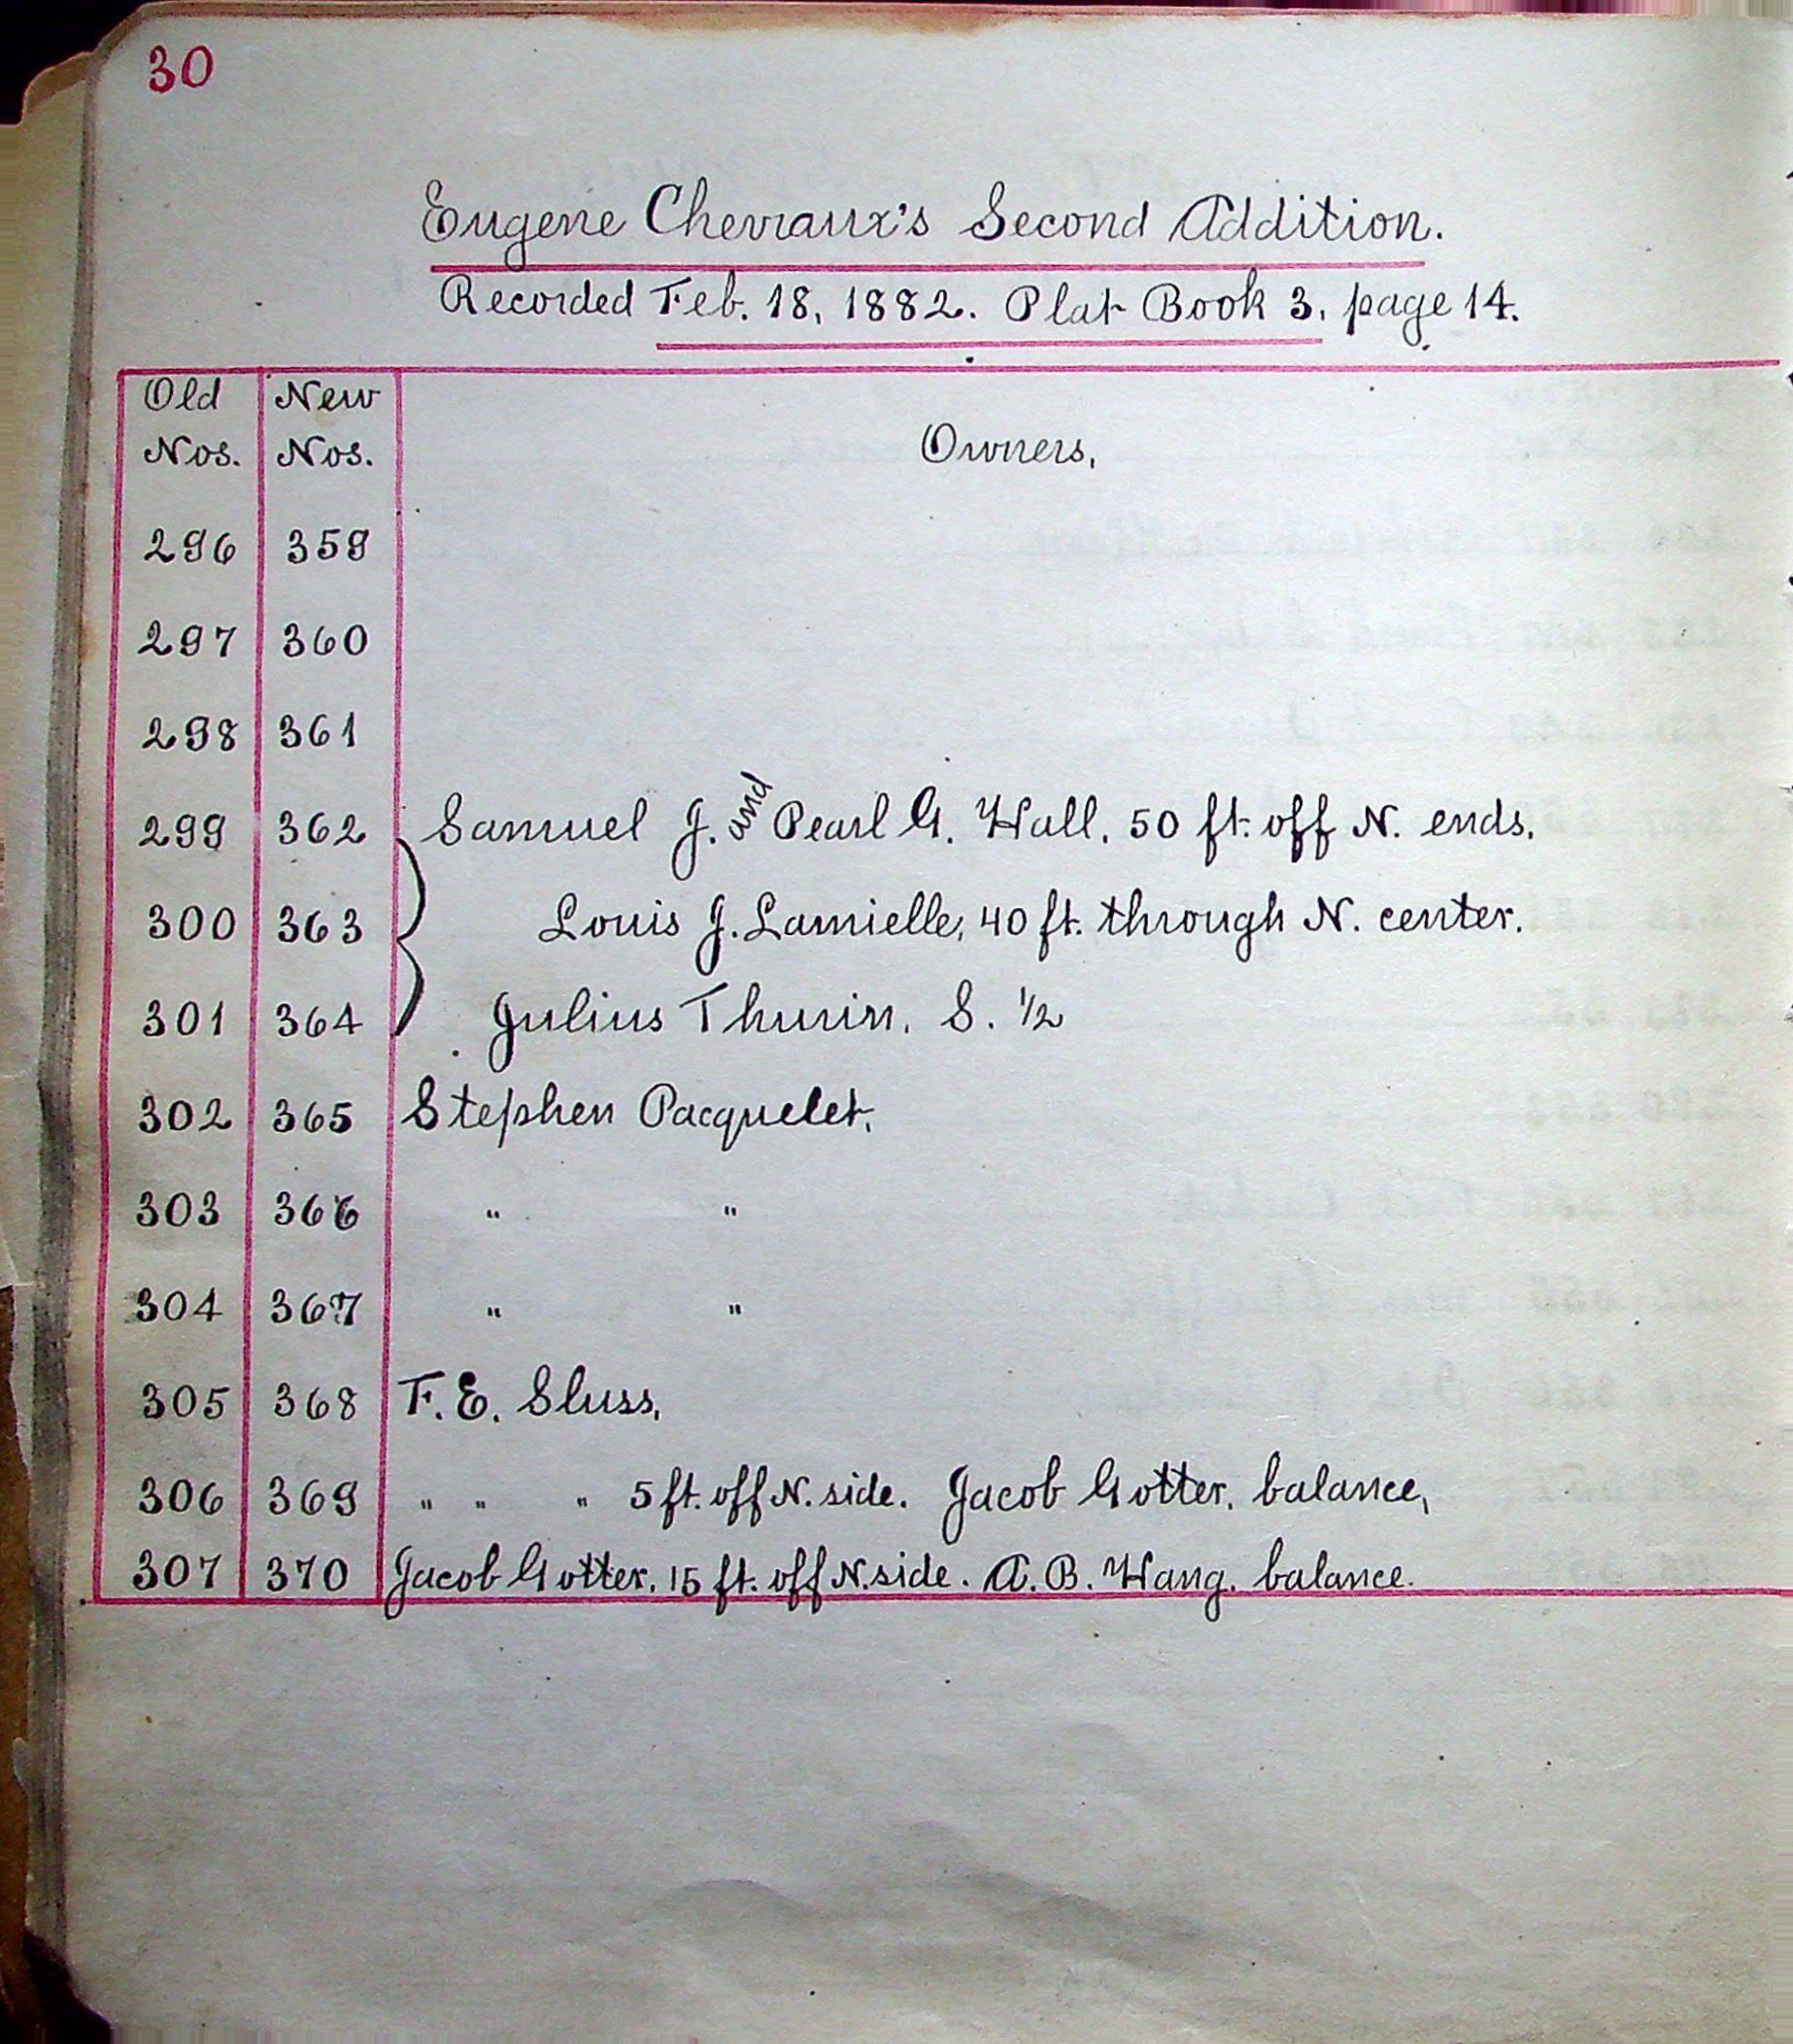 30
Eugene Chevraux's Second Addition.
Recorded Feb. 18, 1882. Plat Book 3, page 14.
Old New
Nos. Nos. Owners,
296 359
297 360
298 361
299 362 Samuel J. and Pearl G. Wall, 50 ft. off N. ends.
300 363 Louis J. Lamielle, 40 ft. through N. center.
301 364 Julius Thurin, S. 1/2
302 365 Stephen Pacquelet,
303 366 " "
304 367 " "
305 368 F. E. Sluss,
306 369 " " " 5 ft. off N. side. Jacob Gotter, balance,
307 370 Jacob Gotter, 15 ft. off N. side. A. B. Wang, balance.